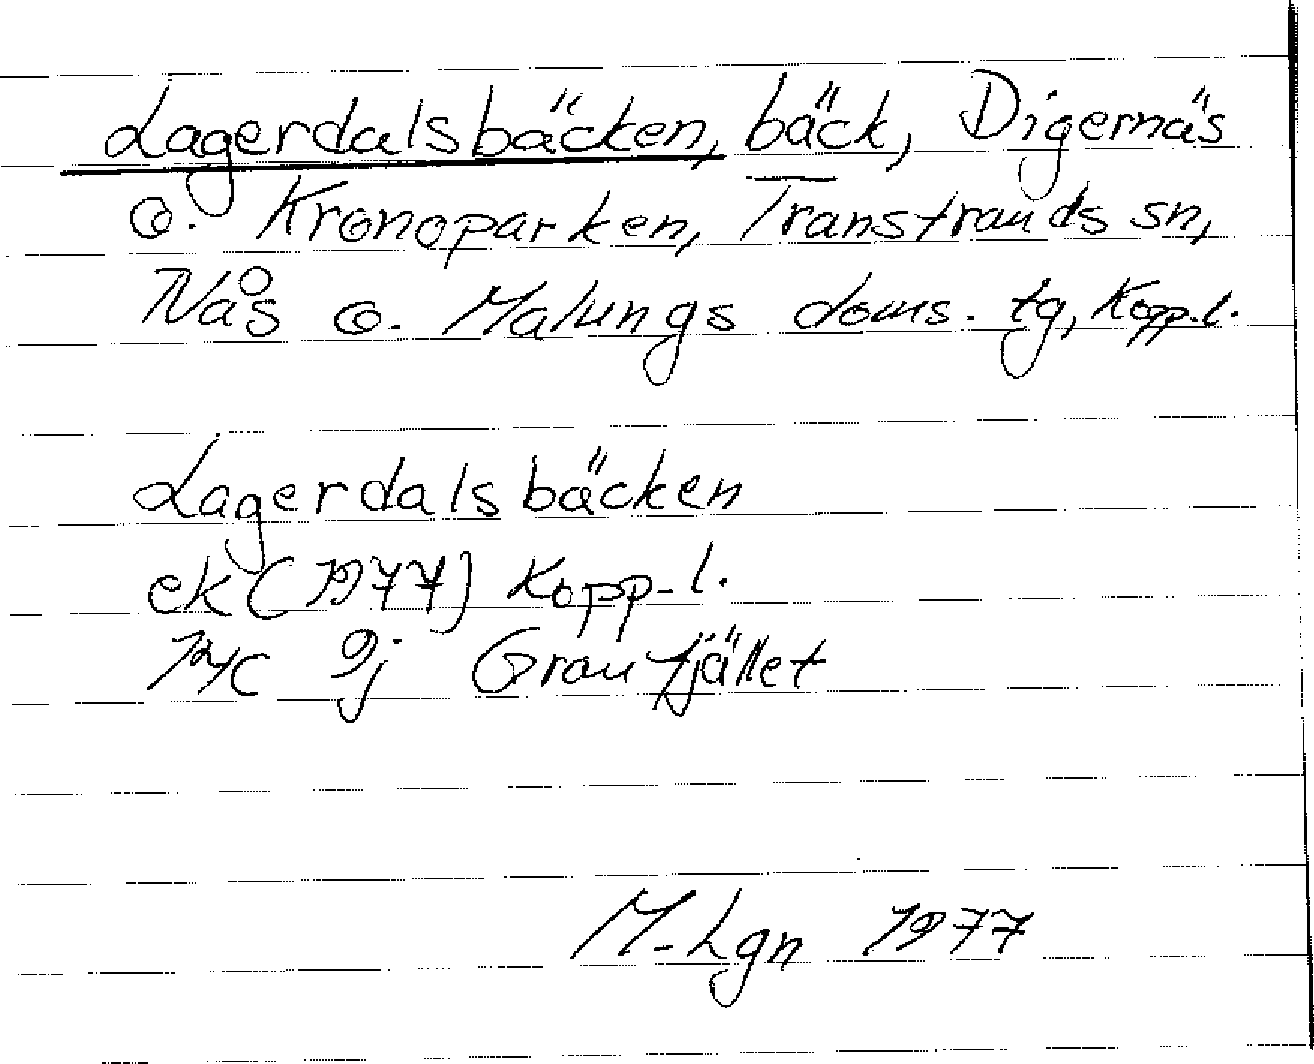 Lagerdalsbäcken, bäck, Digernäs
o. Kronoparken, Transtrands sn,
Nås o. Malungs doms. tg, Kopp.l.
Lagerdalsbäcken
ek (1977) Kopp-l.
9j Granfjället
M-Lgn 1977